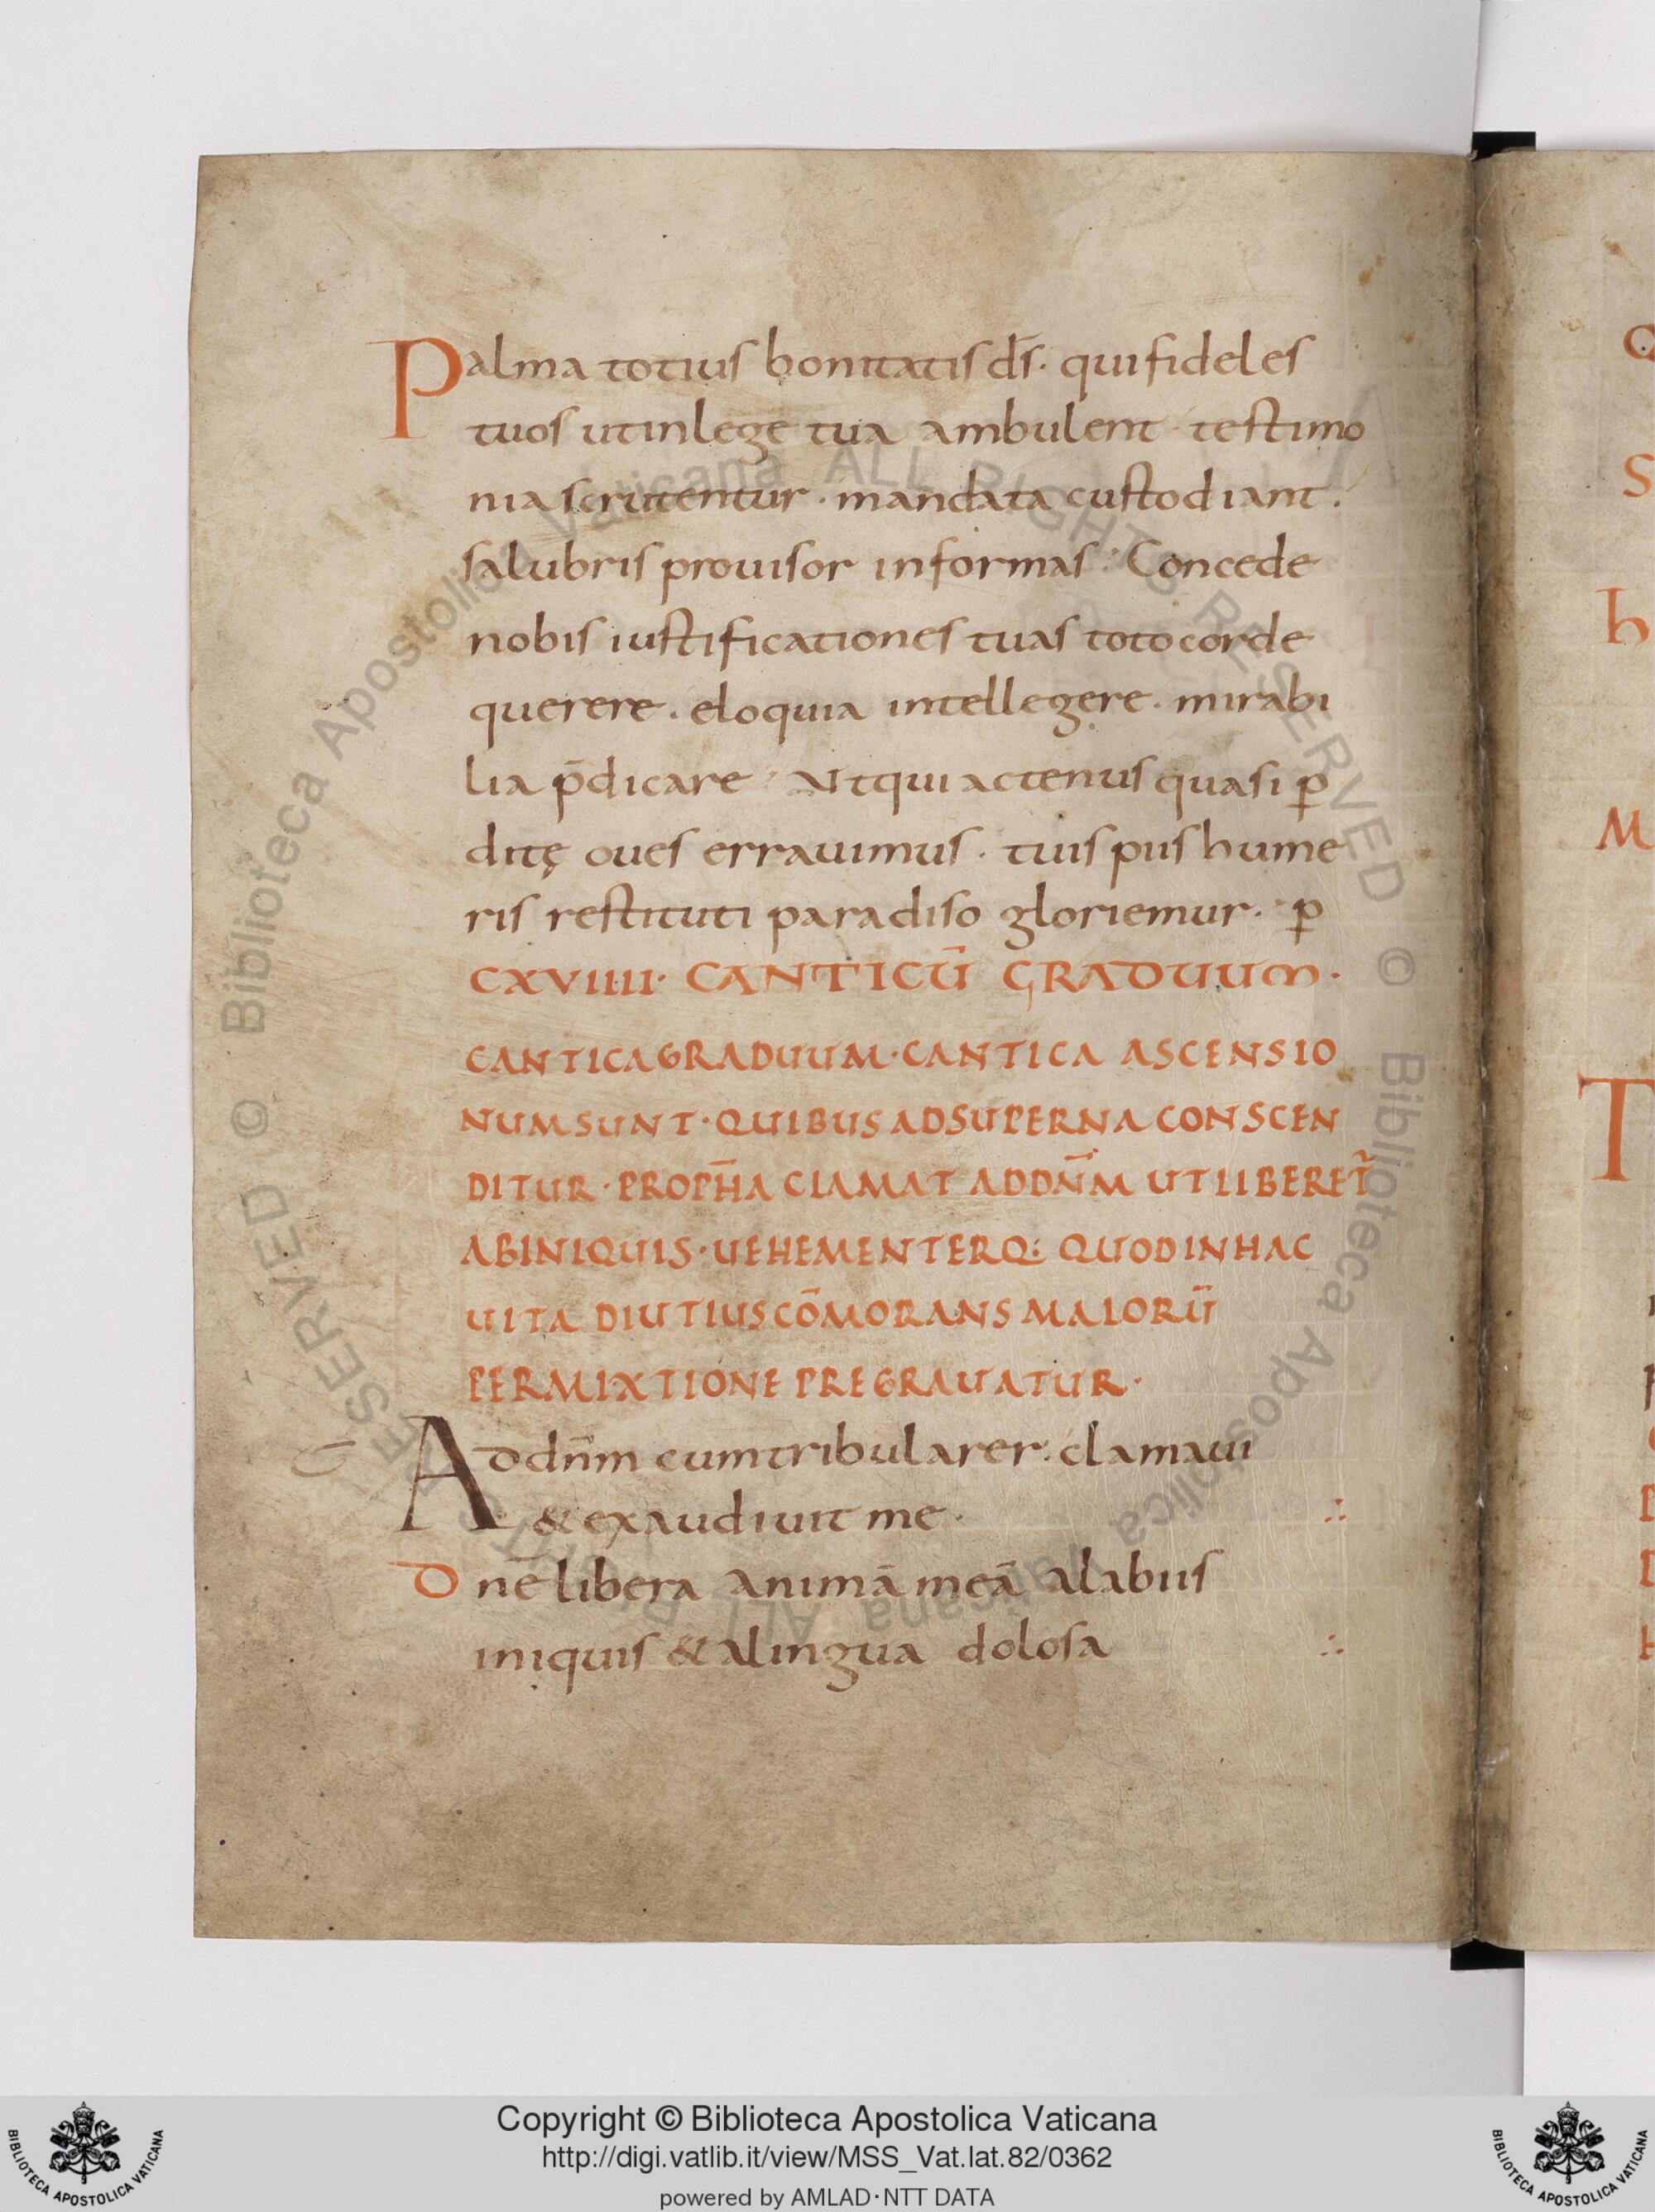 Palma totius bonitatis ds̄· qui fideles
tuos ut in lege tua ambulent · testimo
nia scrutentur · mandata custodiant ·
salubris prouisor informas · Concede
nobis iustificationes tuas toto corde
querere · eloquia intellegere · mirabi
lia p̄dicare · Ut qui actenus quasi ꝑ
ditę oues errauimus · tuis piis hume
ris restituti paradiso gloriemur · ꝑ
CXVIIII· CANTICŪ GRADUUM·
CANTICA GRADUUM · CANTICA ASCENSIO
NUM SUNT · QUIBUS AD SUPERNA CONSCEN
DITUR · PROPH̄A CLAMAT AD DN̄M UT LIBERET̄
AB INIQUIS · UEHEMENTERQ: QUOD IN HAC
UITA DIUTIUS CŌMORANS MALORŪ
PERMIXTIONE PREGRAUATUR ·
Ad dn̄m cum tribularer · clamaui
& exaudiuit me ·
Dnē libera animā meā a labiis
iniquis & a lingua dolosa
Copyright © Biblioteca Apostolica Vaticana
http://digi.vatlib.it/view/MSS_Vat.lat.82/0362
powered by AMLAD·NTT DATA
BIBLIOTECA APOSTOLICA VATICANA
BIBLIOTECA APOSTOLICA VATICANA